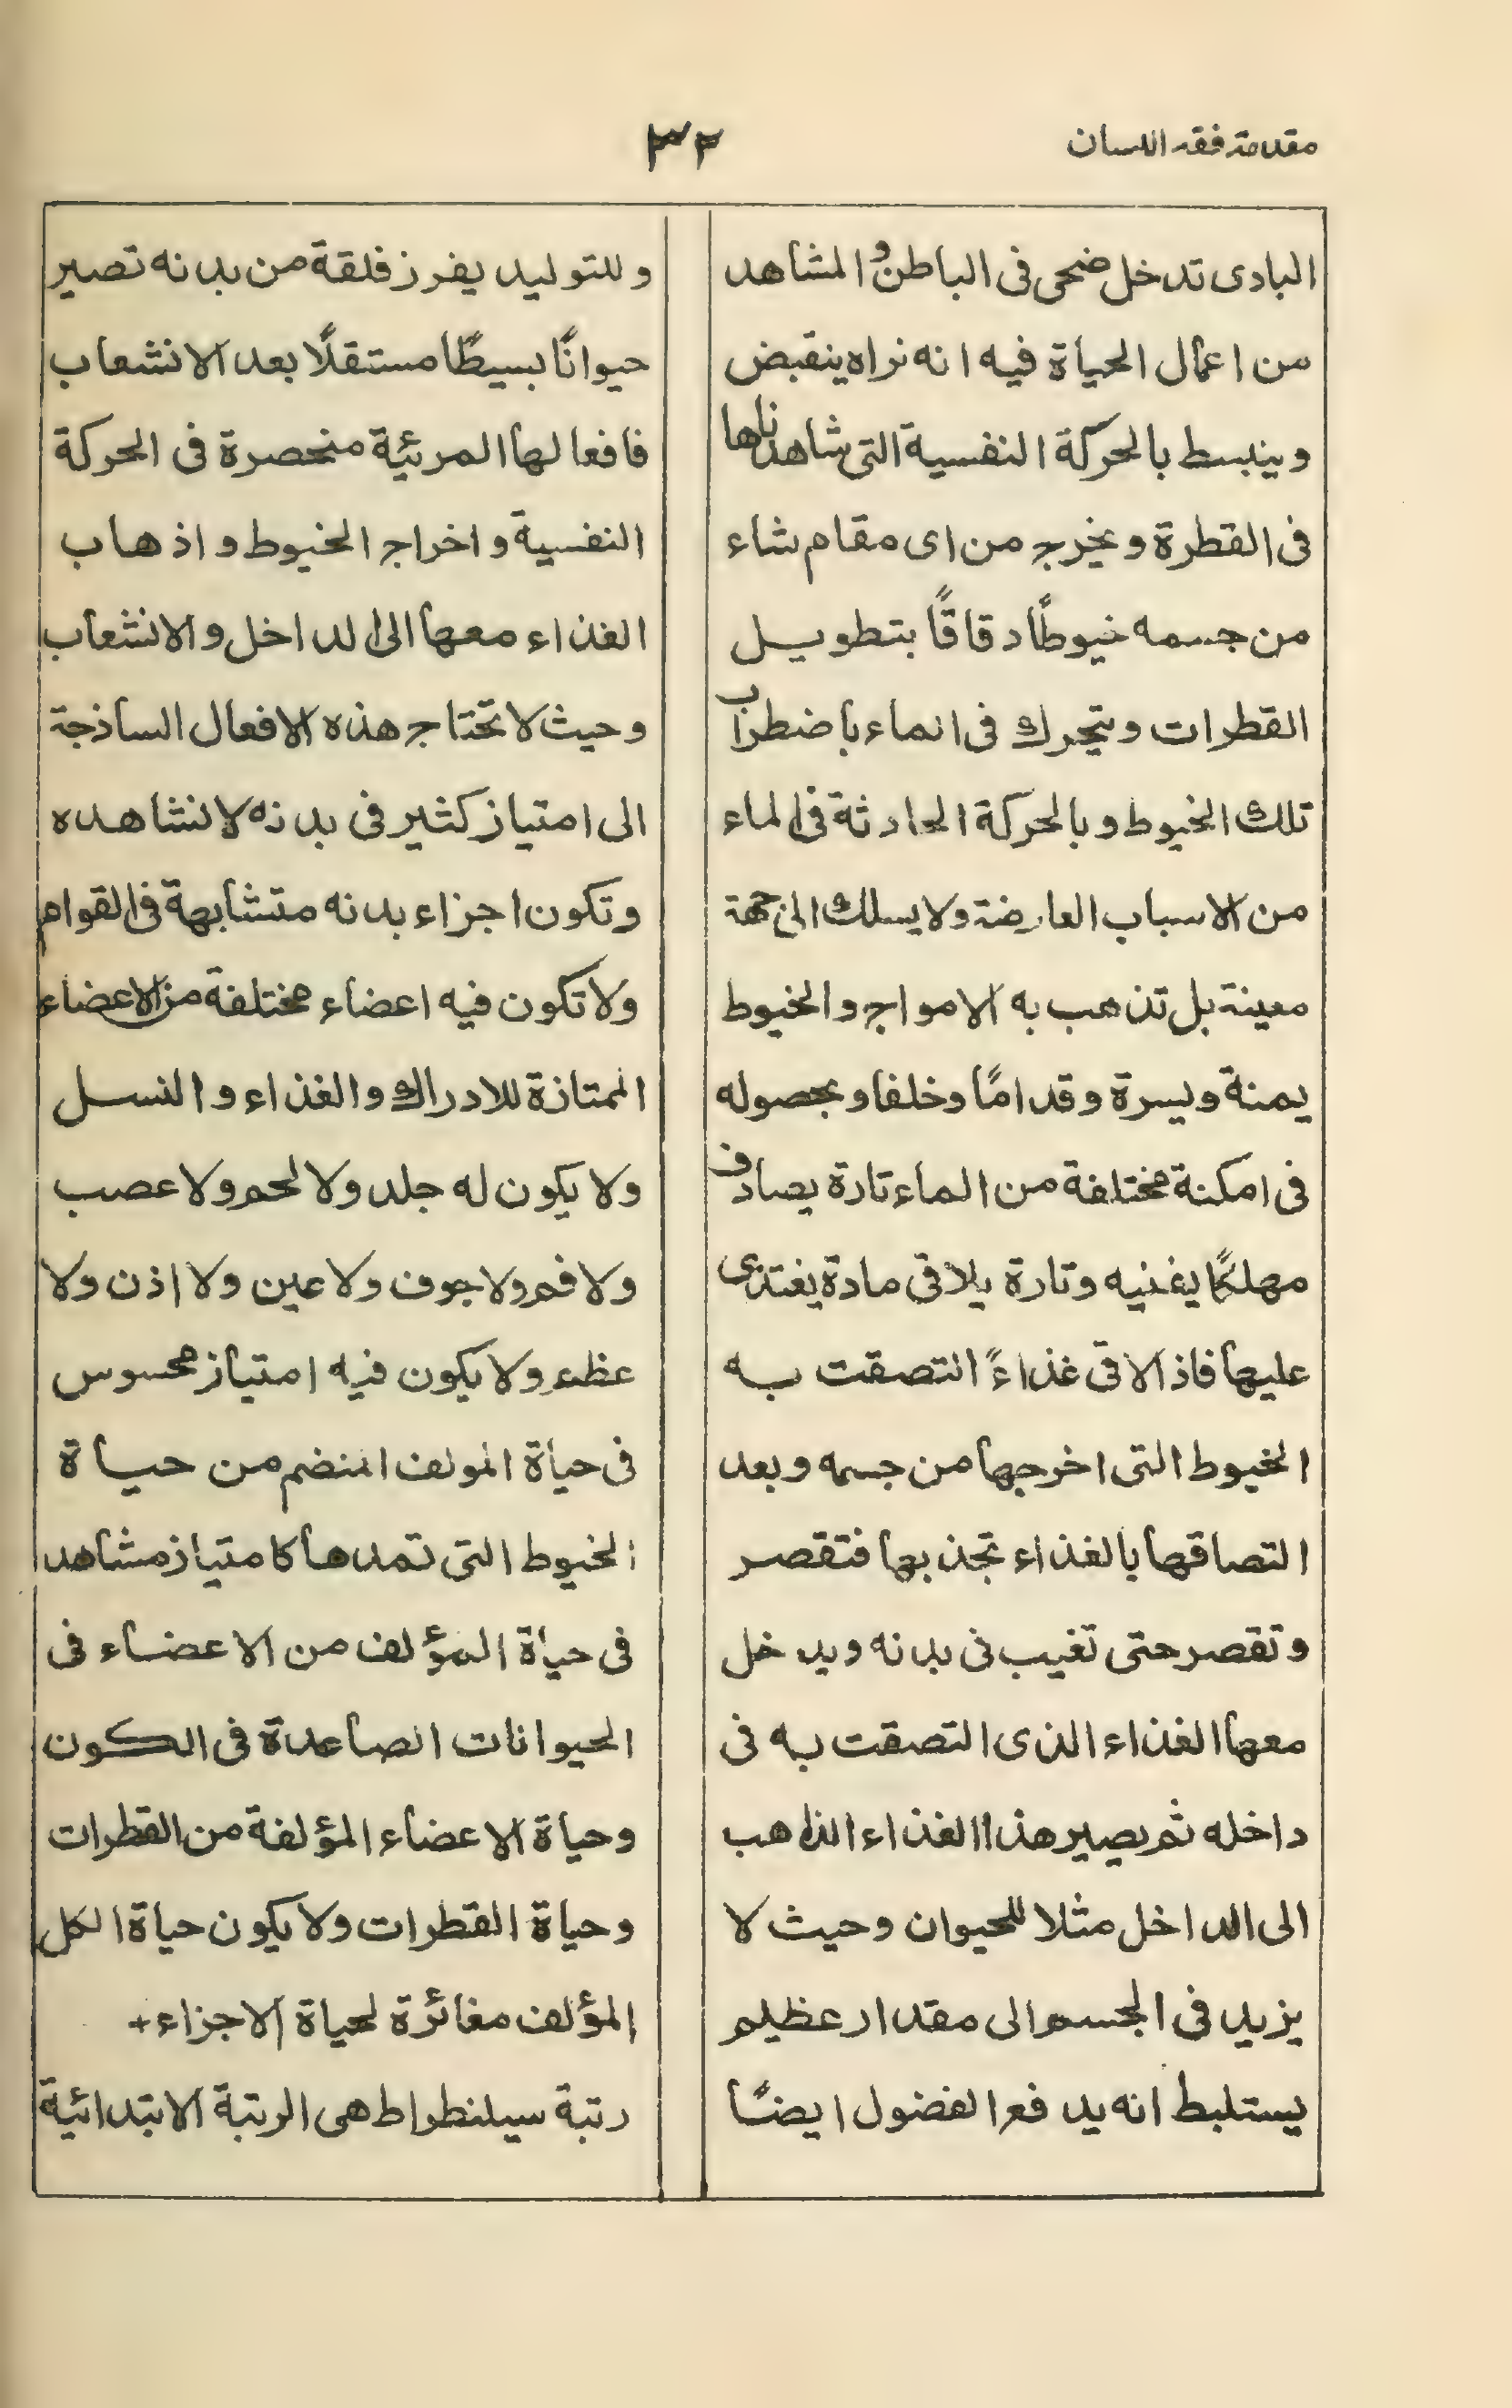 مقدمة فقه اللسان
٣٢
البادى تدخل ضحى فى الباطن والمشاهد
من اعمال الحياة فيه انه نراه ينقبض
وينبسط بالحركة النفسية التى شاهدناها
فى القطرة ويخرج من اى مقام شاء
من جسمه خيوطًا دقاقًا بتطويل
القطرات ويتحرك فى الماء باضطراب
تلك الخيوط وبالحركة الحادثة فى الماء
من الاسباب العارضة ولا يسلك الى جهة
معينة بل تذهب به الامواج والخيوط
يمنة ويسرة وقدامًا وخلفا وبحصوله
فى امكنة مختلفة من الماء تارة يصادف
مهلكًا يفنيه وتارة يلاقى مادة يغتذى
عليها فاذا لاقى غذاءً التصقت به
الخيوط التى اخرجها من جسمه وبعد
التصاقها بالغذاء تجذبها فتقصر
وتقصر حتى تغيب فى بدنه ويدخل
معها الغذاء الذى التصقت به فى
داخله ثم يصير هذا الغذاء الذاهب
الى الداخل مثلا للحيوان وحيث لا
يزيد فى الجسم الى مقدار عظيم
يستلبط انه يدفع الفضول ايضًا
وللتوليد يفرز فلقة من بدنه تصير
حيوانًا بسيطًا مستقلًا بعد الانشعاب
فافعالها المرئية منحصرة فى الحركة
النفسية واخراج الخيوط واذهاب
الغذاء معها الى الداخل والانشعاب
وحيث لا تحتاج هذه الافعال الساذجة
الى امتياز كثير فى بدنه لا نشاهده
وتكون اجزاء بدنه متشابهة فى القوام
ولا تكون فيه اعضاء مختلفة من الاعضاء
الممتازة للادراك والغذاء والنسل
ولا يكون له جلد ولا لحم ولا عصب
ولا فم ولا جوف ولا عين ولا اذن ولا
عظم ولا يكون فيه امتياز محسوس
فى حياة المولف المنضم من حياة
الخيوط التى تمدها كامتياز مشاهد
فى حياة المؤلف من الاعضاء فى
الحيوانات الصاعدة فى الكون
وحياة الاعضاء المؤلفة من القطرات
وحياة القطرات ولا يكون حياة الكل
المؤلف مغائرة لحياة الاجزاء +
رتبة سيلنطراط هى الرتبة الابتدائية